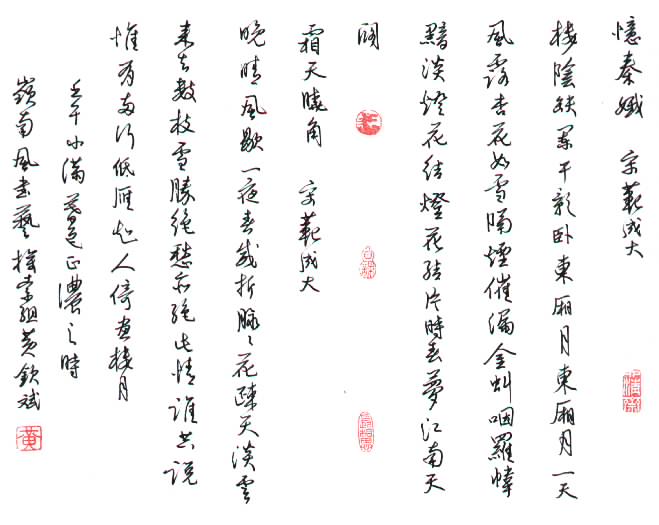 憶秦娥 宋 範成大
樓陰缺闌干影臥東廂月東廂月一天
風露杏花如雪隔煙催漏金虯咽羅幃
黯淡燈花結燈花結片時春夢江南天
闊
霜天曉角 宋 範成大
晚晴風歇一夜春威折脉〻花疎天淡雲
来去數枝雪勝絶愁亦絶此情誰共説
惟有兩行低雁知人倚畫樓月
壬午小滿 正濃之時
嶺南風書藝探索組黃欽斌
黃